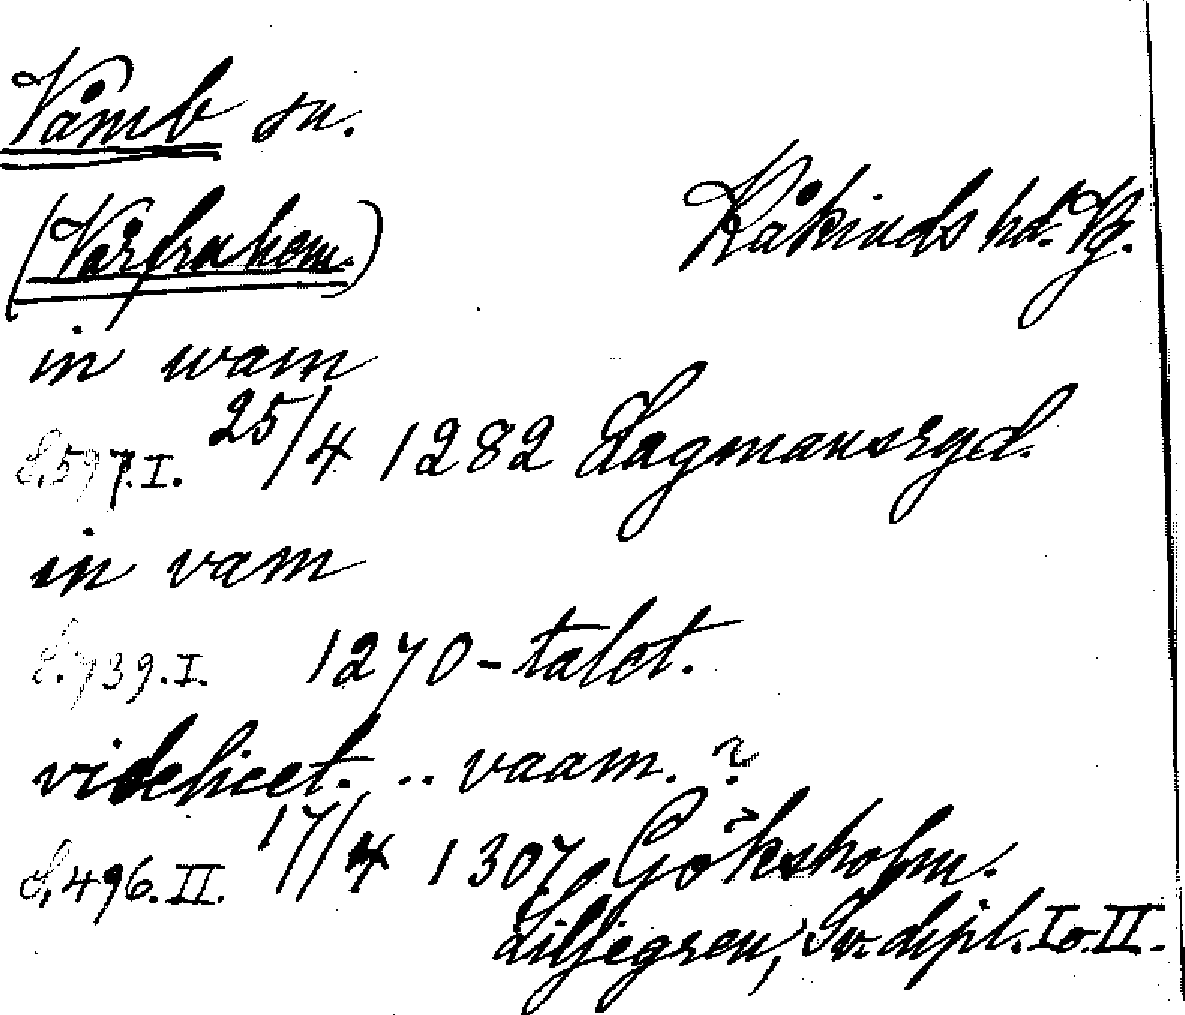 Våmb sn.
(Vårfrukem.)
Kåkinds hd. Vg.
in wam
S. 597. I. 25/4 1282 Lagmansryd.
in vam
S. 739. I. 1270-talet.
videlicet. .. vaam. ?
S. 496. II. 17/4 1307 Göksholm.
Liljegren, Sv. dipl. I o. II.